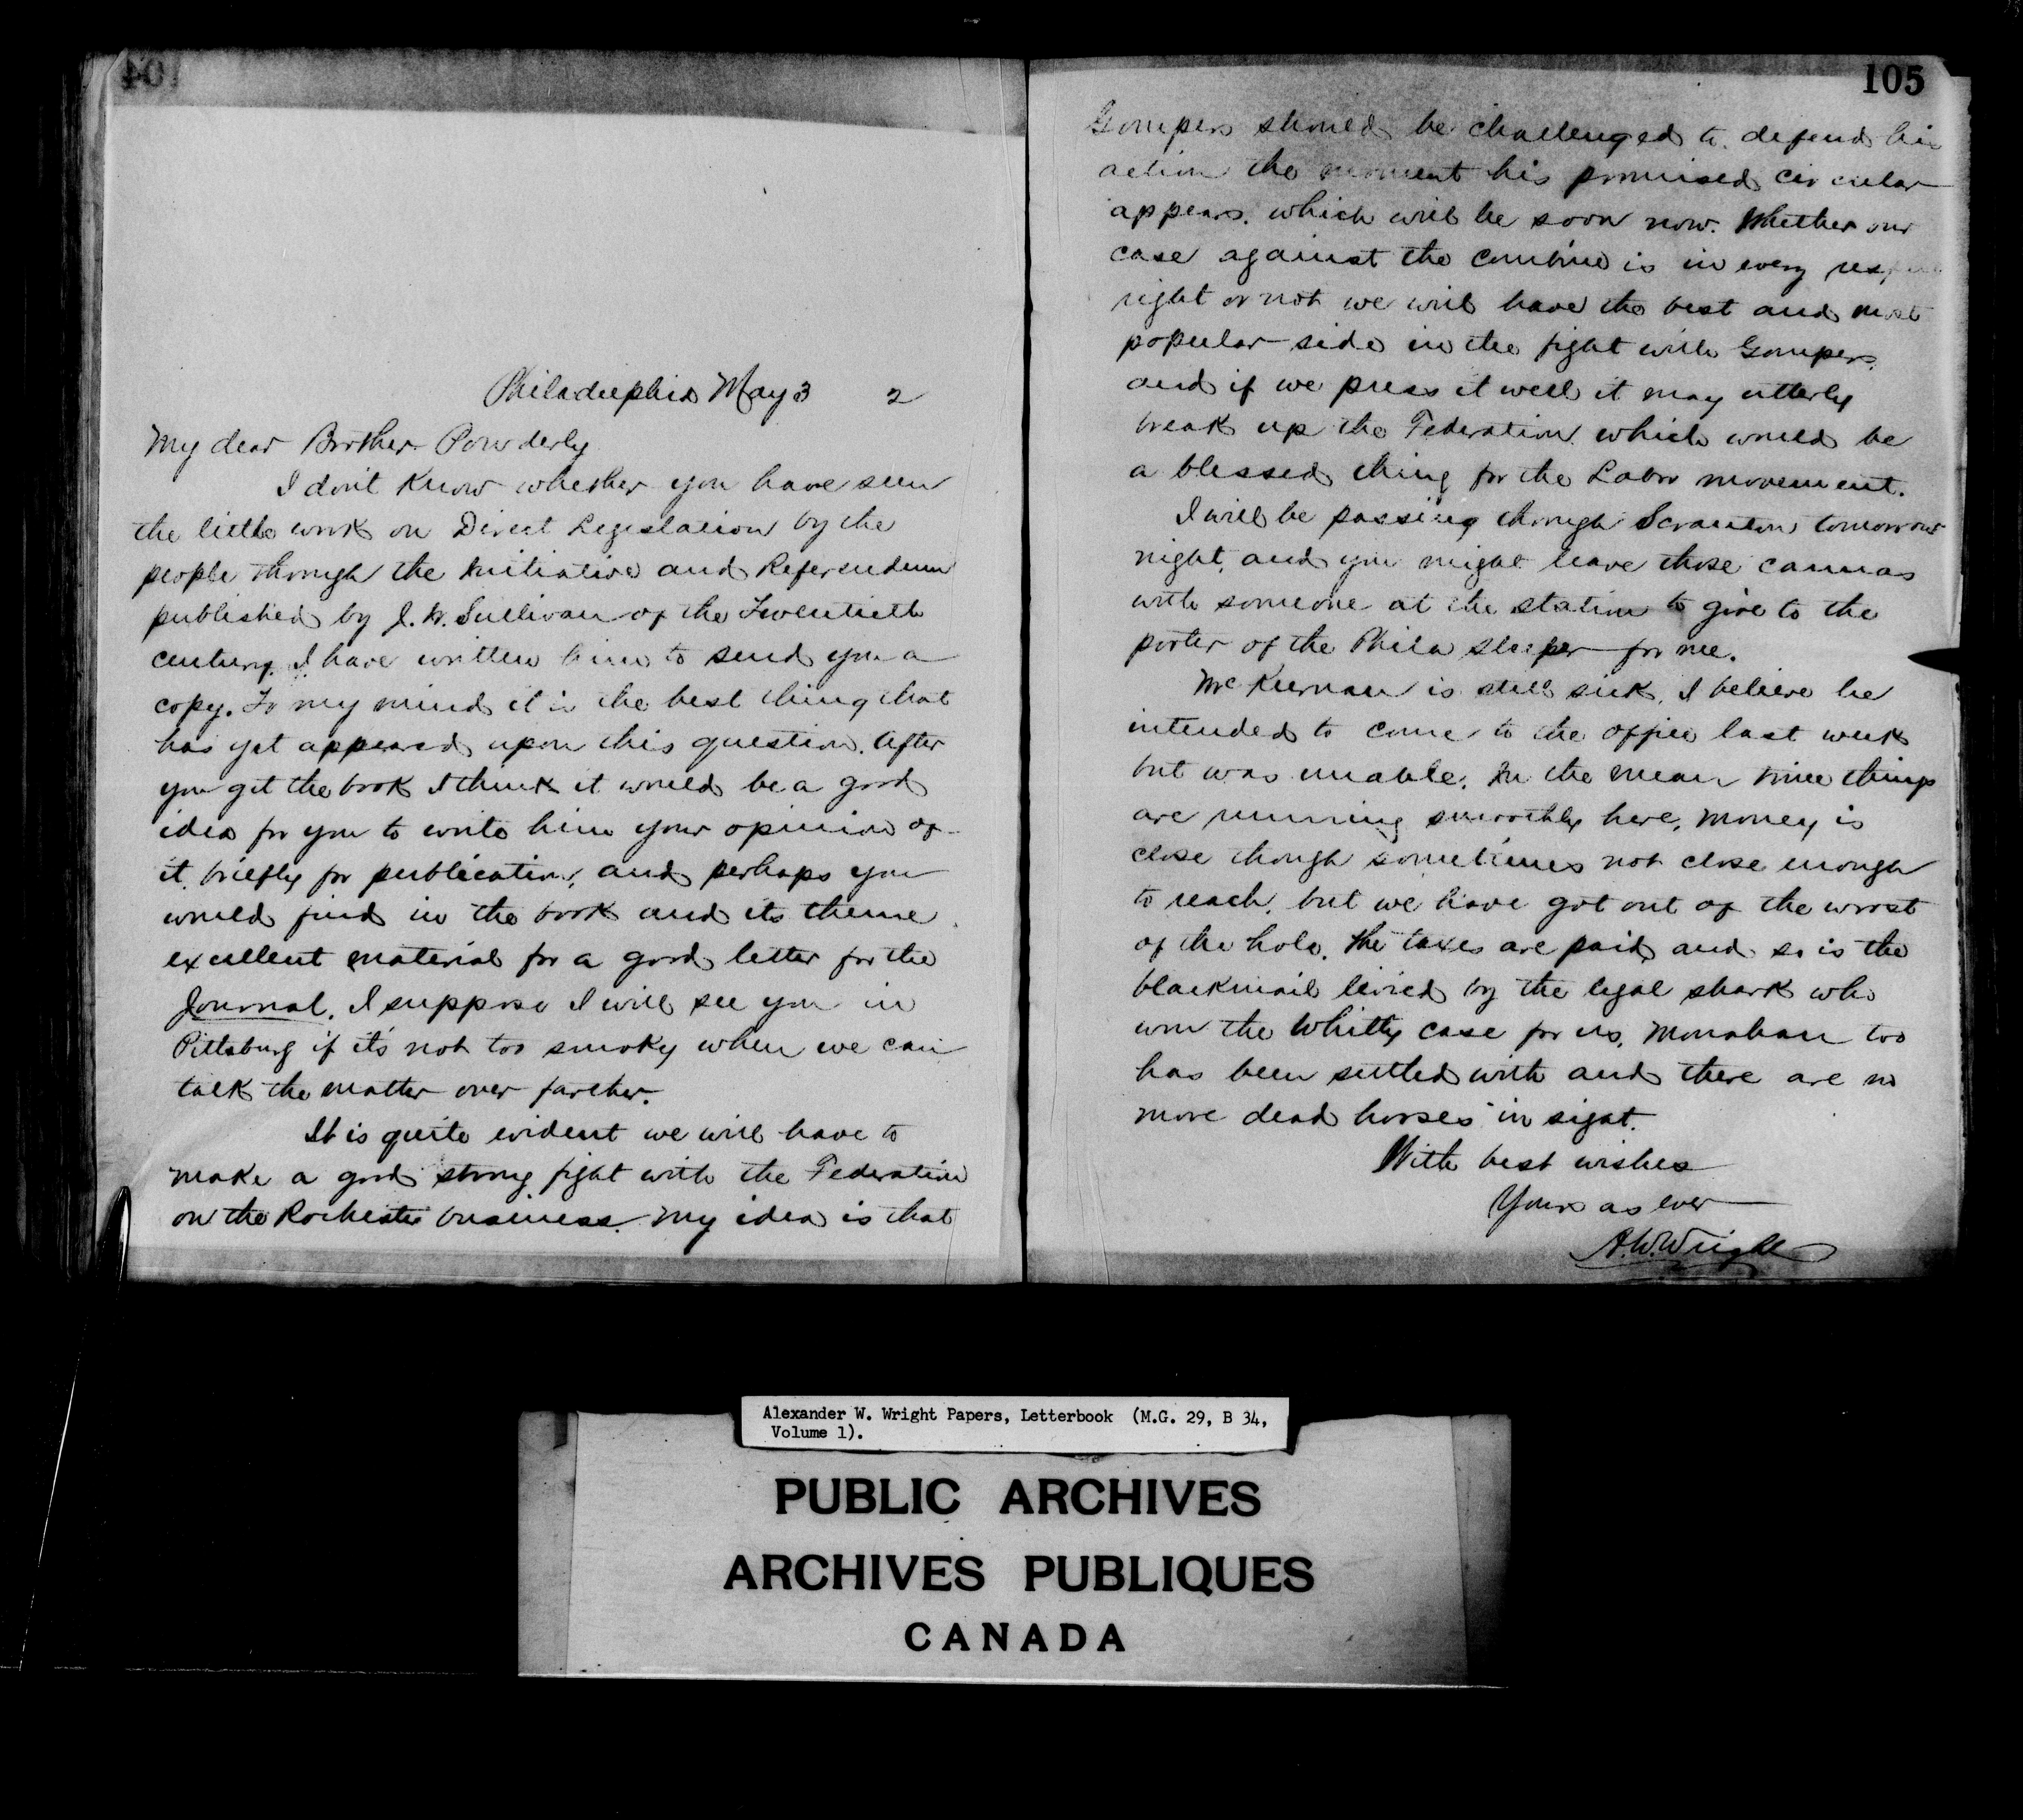 104
Philadelphia May 3 2
My dear Brother Powderly
I don't know whether you have seen
the little work on Direct Legislation by the
people through the Initiative and Referendum
published by J. W. Sullivan of the Twentieth
century. I have written him to send you a
copy. To my mind it is the best thing that
has yet appeared upon this question. After
you get the book I think it would be a good
idea for you to write him your opinion of
it, briefly for publication, and perhaps you
would find in the book and its theme
excellent material for a good letter for the
Journal. I suppose I will see you in
Pittsburg if it's not too smoky when we can
talk the matter over farther.
It is quite evident we will have to
make a good strong fight with the Federation
on the Rochester business. My idea is that
105
Gompers should be challenged to defend his
action the moment his promised circular
appears. which will be soon now. Whether our
case against the combine is in every
right or not we will have the best and most
popular side in the fight with Gompers,
and if we press it well it may utterly
break up the Federation which would be
a blessed thing for the Labor movement.
I will be passing through Scranton tomorrow
night, and you might leave those cannas
with someone at the station to give to the
porter of the Phila sleeper for me.
McKiernan is still sick. I believe he
intended to come to the office last week
but was unable. In the mean time things
are running smoothly here, money is
close though sometimes not close enough
to reach, but we have got out of the worst
of the hole. The taxes are paid and so is the
blackmail levied by the legal shark who
won the Whitty case for us, Monahan too
has been settled with and there are no
more dead horses in sight.
With best wishes
Yours as ever
A.W. Wright
Alexander W. Wright Papers, Letterbook (M.G. 29, B 34,
Volume 1).
PUBLIC ARCHIVES
ARCHIVES PUBLIQUES
CANADA